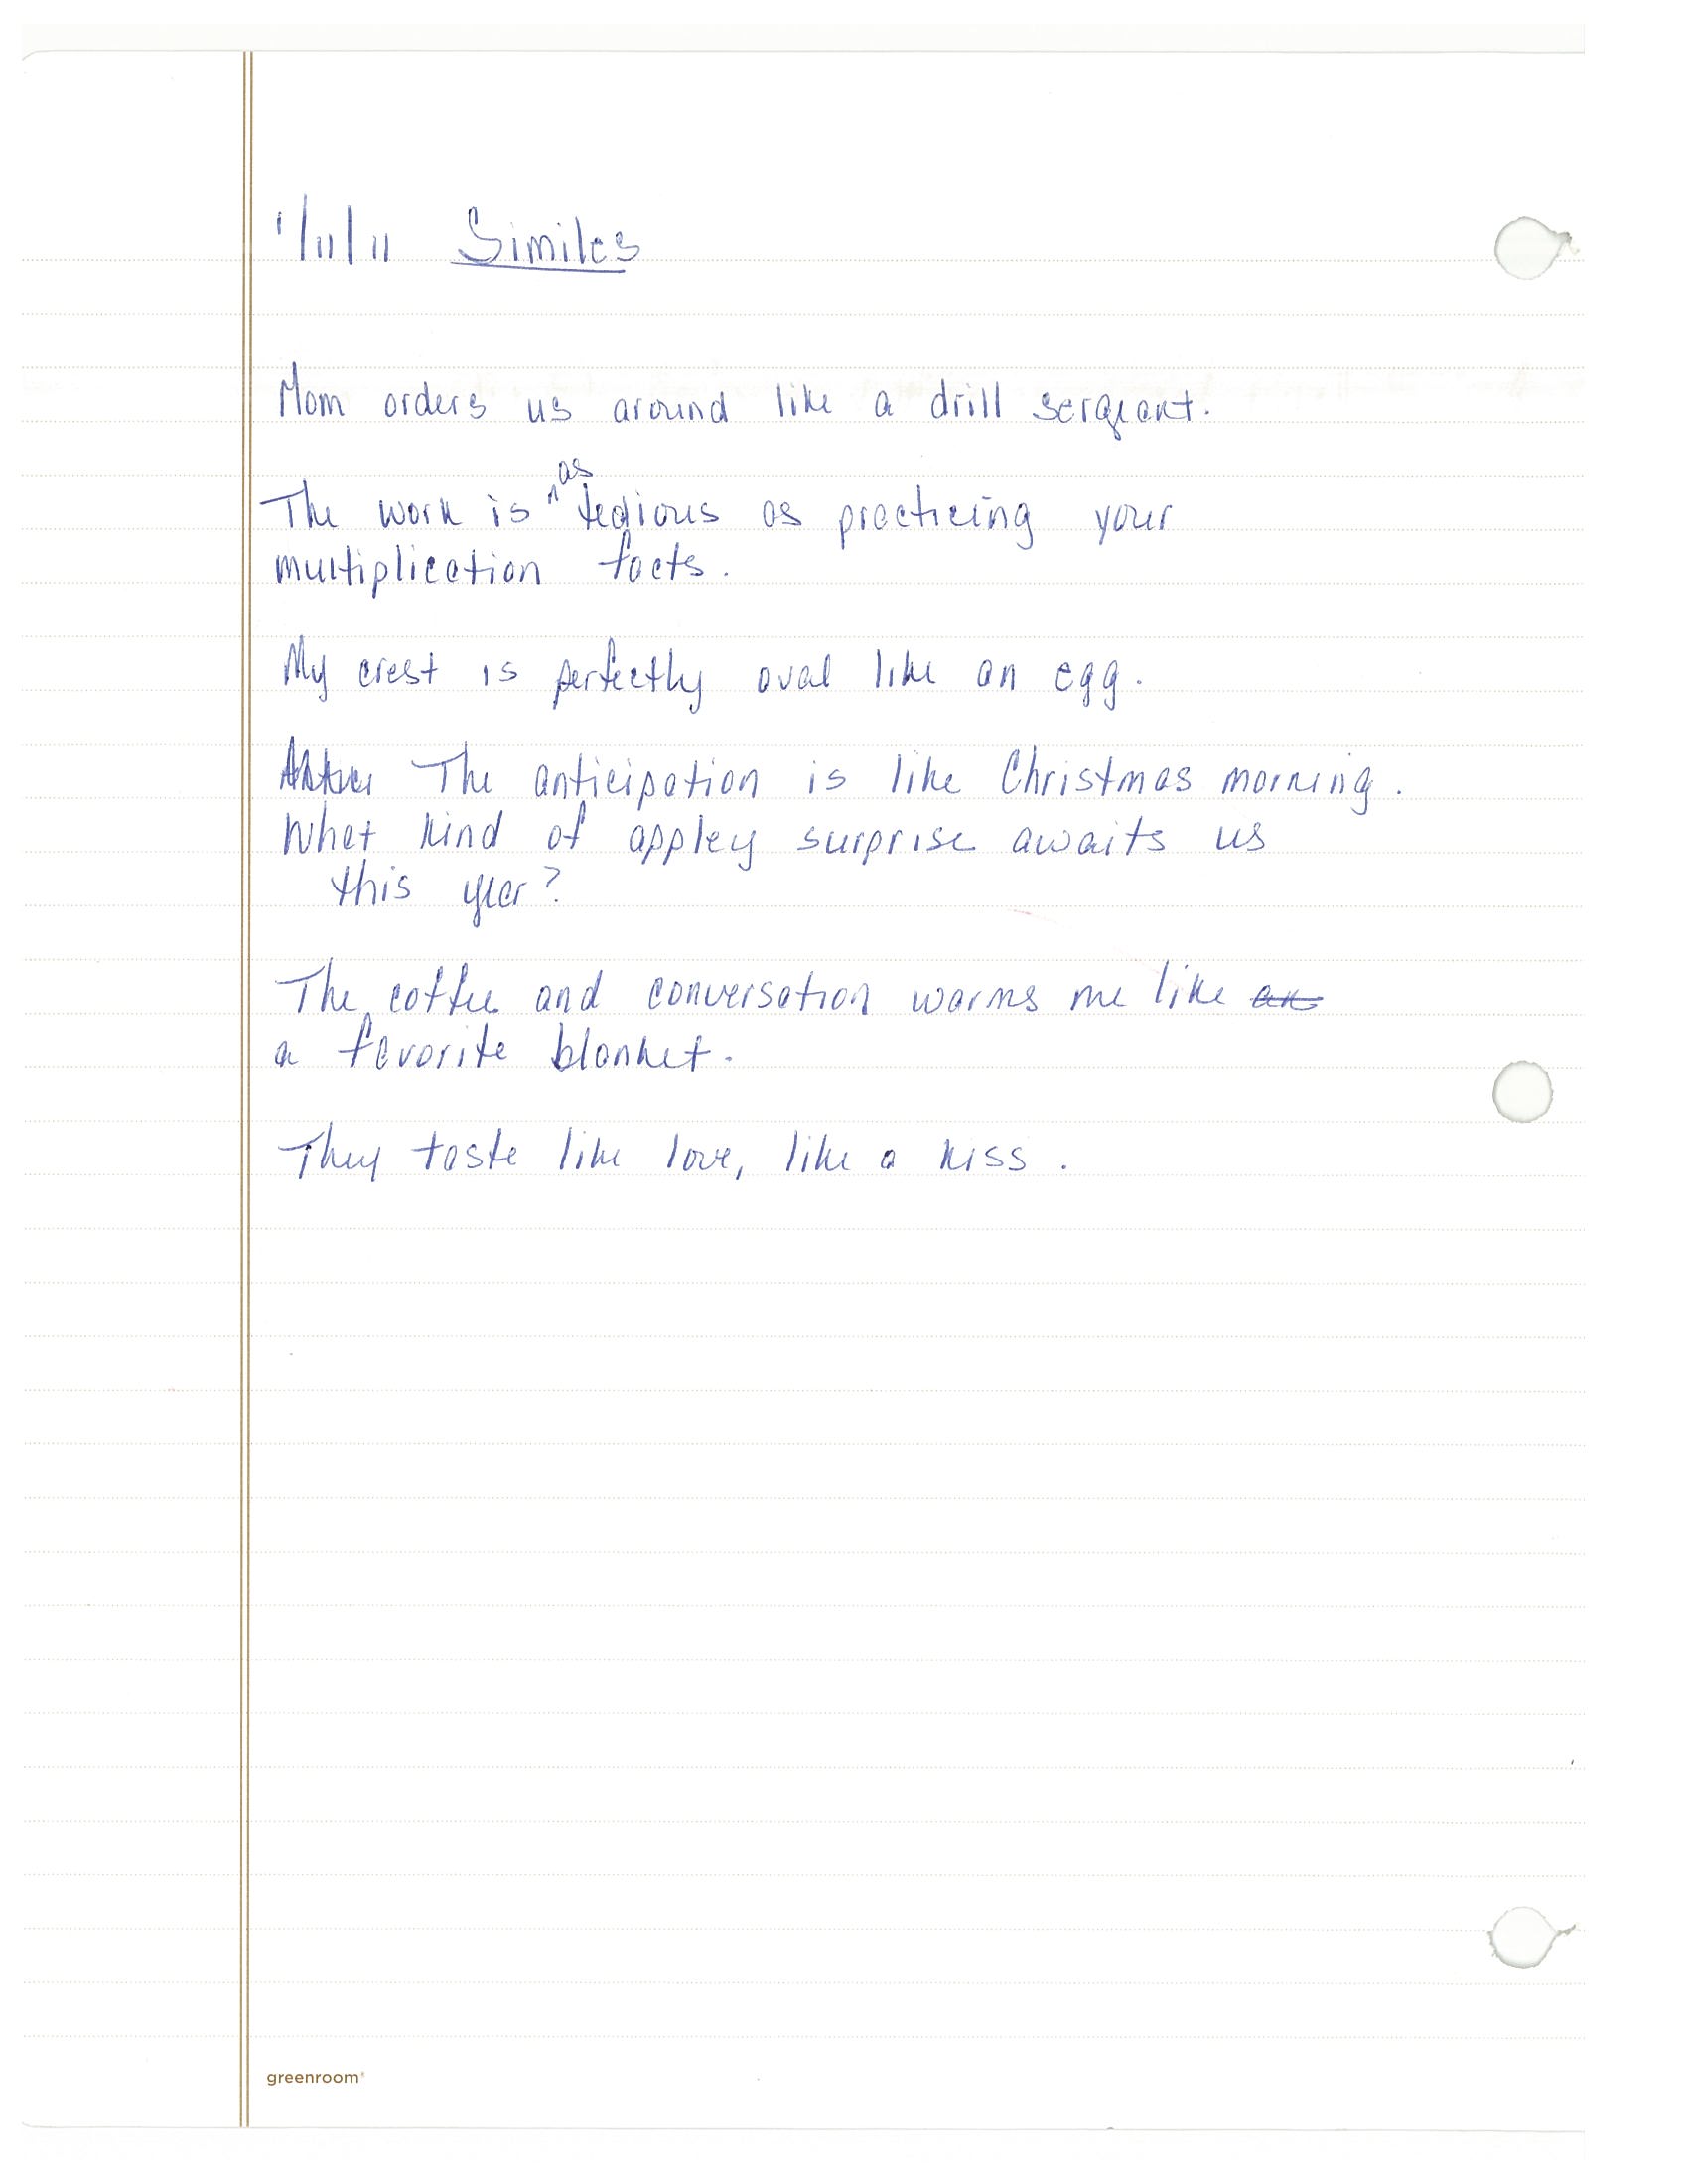 1/11/11 Similes
Mom orders us around like a drill sergeant.
as
The work is tedious as practicing your
multiplication facts.
My crest is perfectly oval like an egg.
The anticipation is like Christmas morning.
What kind of appley surprise awaits us
this year?
The coffee and conversation warms me like an
a favorite blanket.
They taste like love, like a kiss.
greenroom